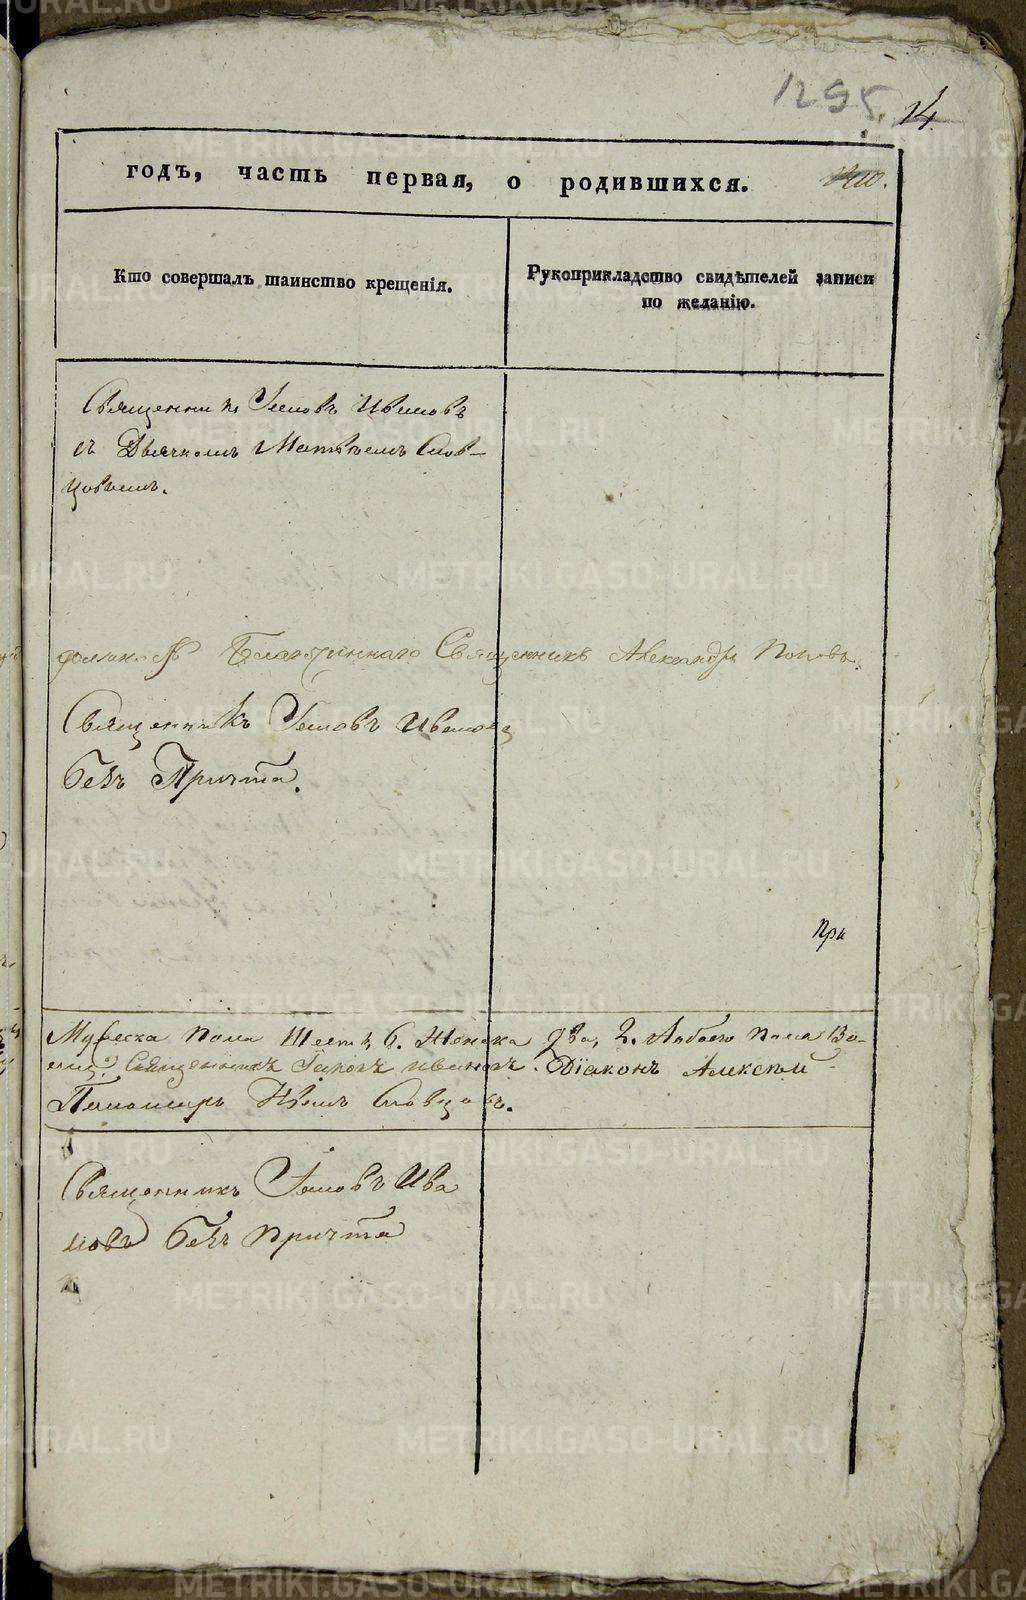 1295. 14
годъ, часть первая, о родившихся.
Кто совершалъ таинство крещенія.
Рукоприкладство свидѣтелей записи
по желанію.
Священникъ Іаковъ Ивановъ
съ Дьячкомъ Матвѣемъ Слов-
цовымъ.
Благочиннаго Священникъ Александръ Поповъ.
Священникъ Іаковъ Ивановъ
безъ Причта.
При
Мужеска пола Шесть, 6. Женска два, 2. Обоего пола Во-
Священникъ Іаковъ Ивановъ. Діаконъ Алексѣй
Пономарь Словцовъ.
Священникъ Іаковъ Ива
новъ безъ причта
METRIKI.GASO-URAL.RU